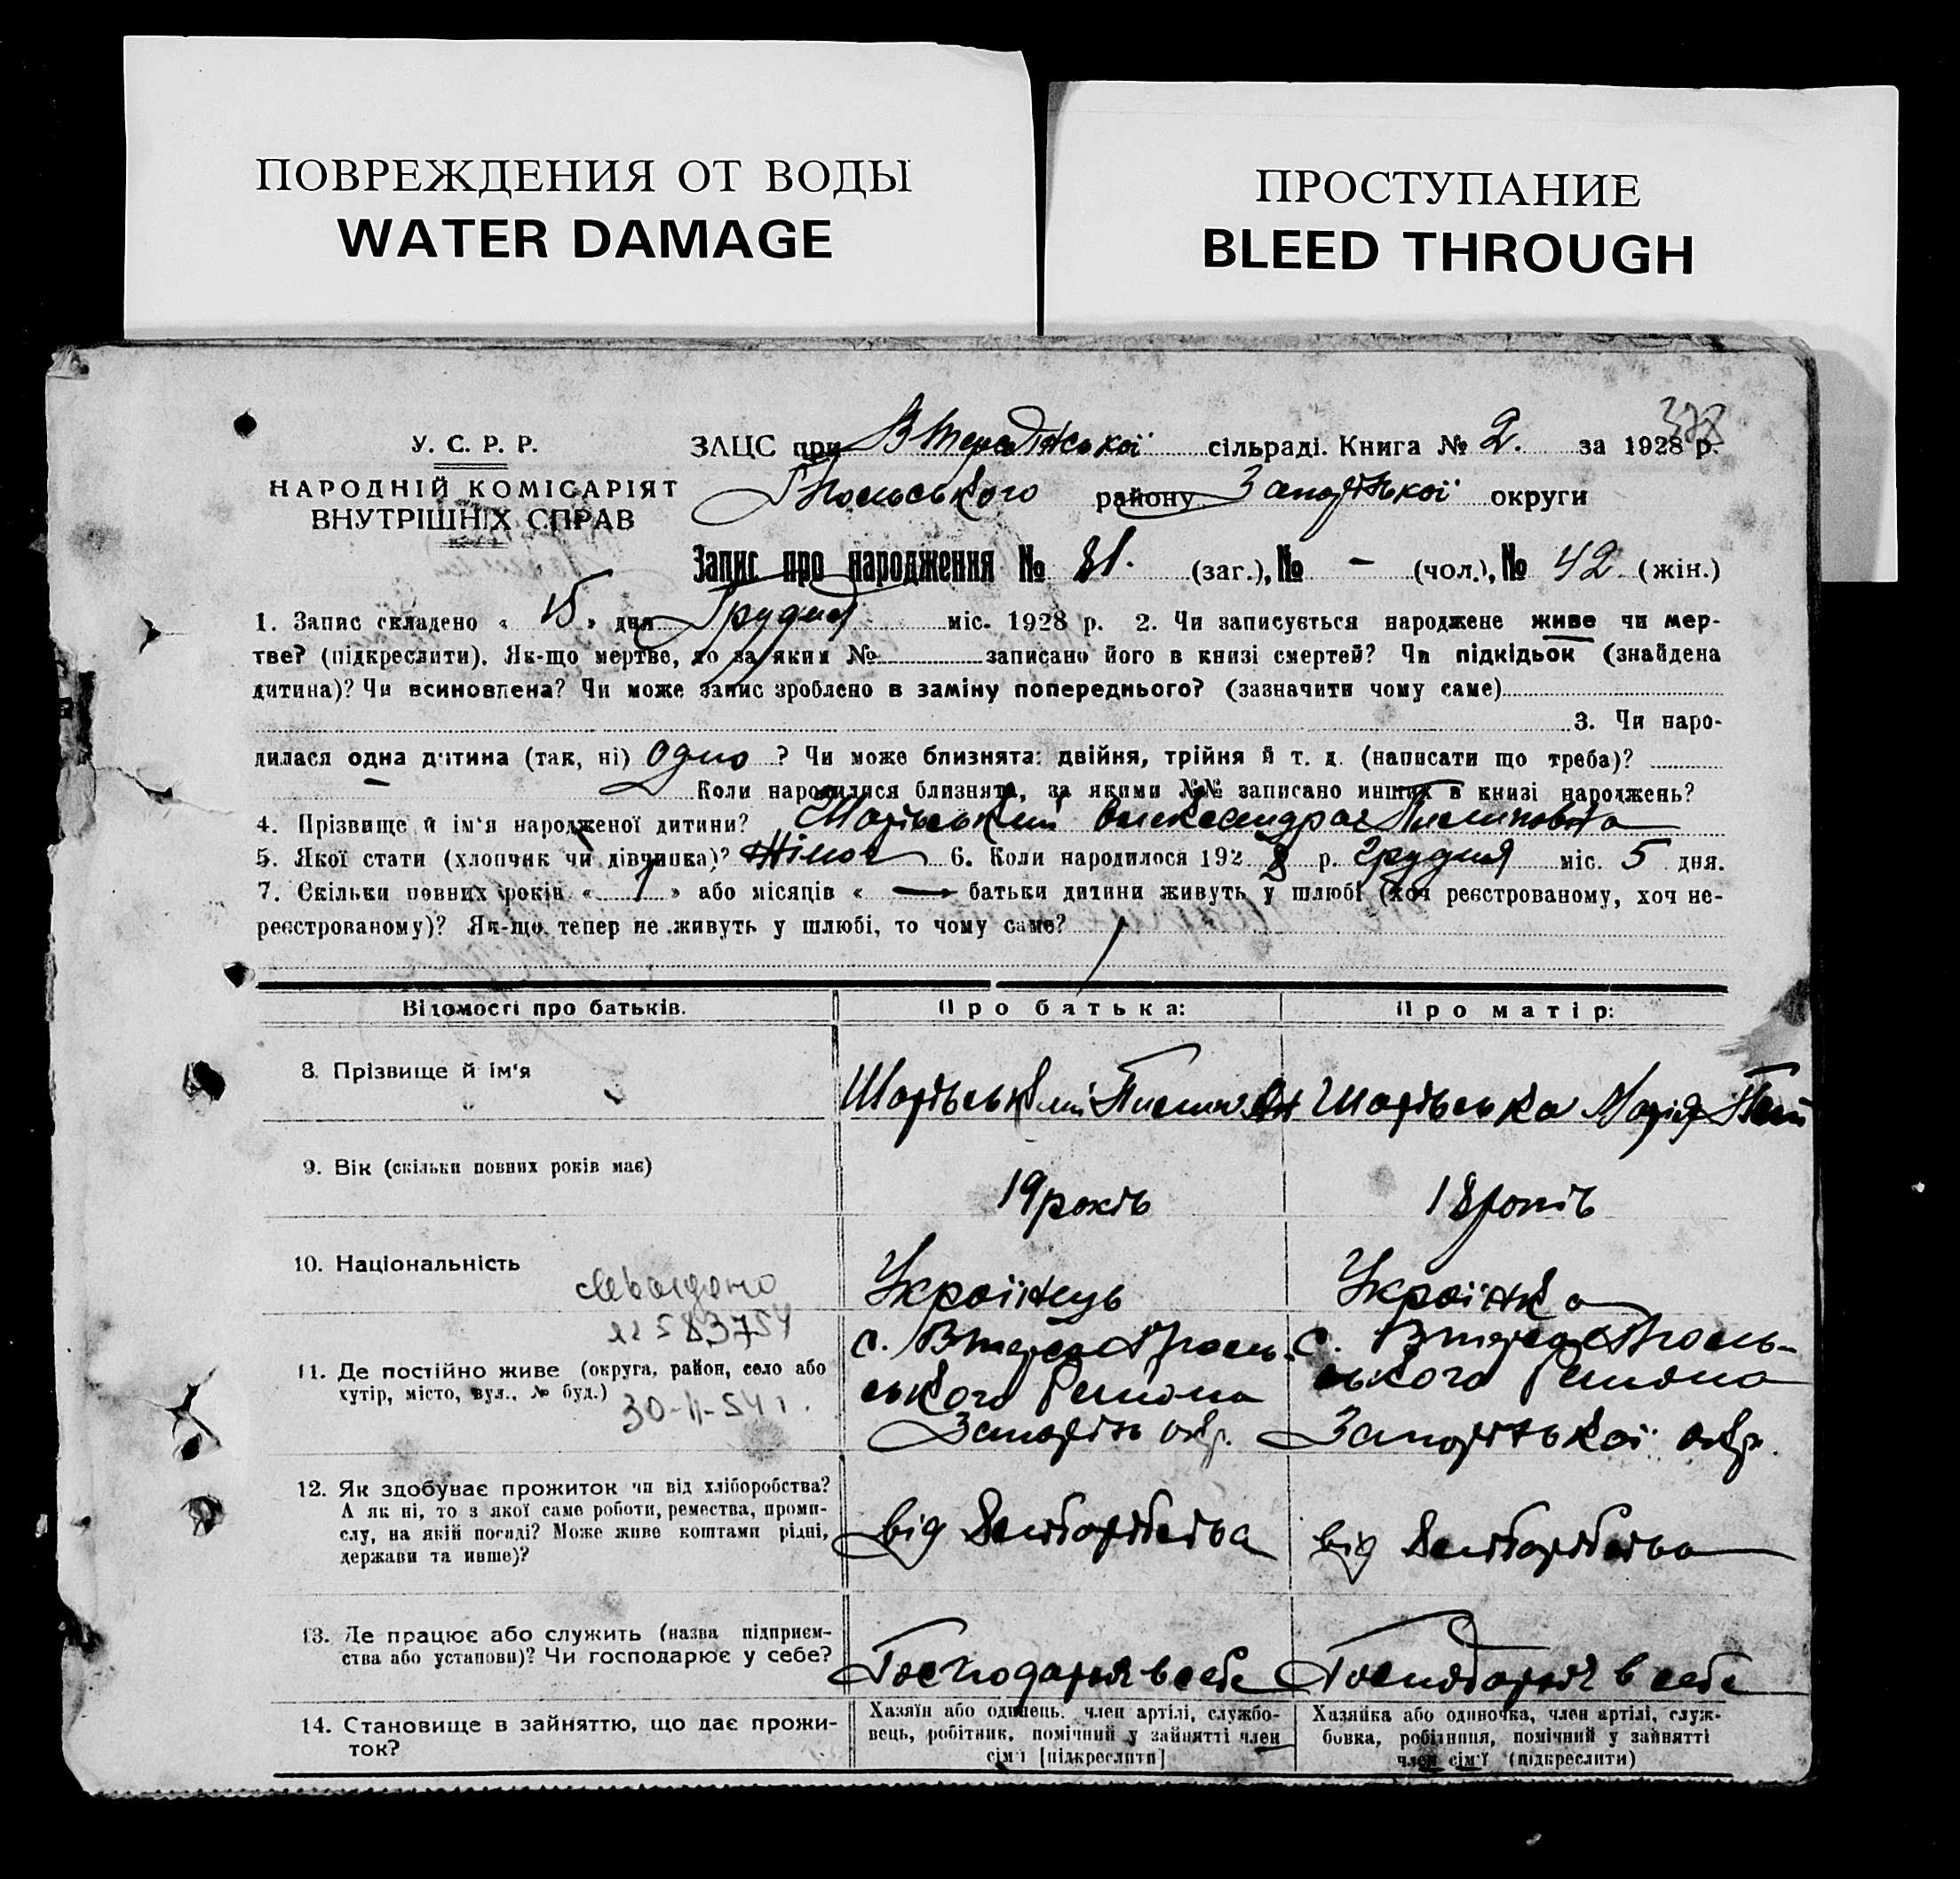 ПОВРЕЖДЕНИЯ ОТ ВОДЫ
WATER DAMAGE
ПРОСТУПАНИЕ
BLEED THROUGH
378
У. С. Р. Р.
НАРОДНІЙ КОМІСАРІЯТ
ВНУТРІШНІХ СПРАВ
ЗАЦС при сільраді. Книга № 2. за 1928 р.
району Запорізької округи
Запис про народження № 81. (заг.), № – (чол.), № 42 (жін.)
1. Запис складено « 15 » дня Грудня міс. 1928 р. 2. Чи записується народжене живе чи мер-
тве? (підкреслити). Як-що мертве, то за яким № записано його в книзі смертей? Чи підкідьок (знайдена
дитина)? Чи всиновлена? Чи може запис зроблено в заміну попереднього? (зазначити чому саме)
3. Чи наро-
дилася одна дитина (так, ні) Одно ? Чи може близнята: двійня, трійня й т. д. (написати що треба)?
Коли народилися близнята, за якими №№ записано инших в книзі народжень?
4. Прізвище й ім'я народженої дитини? Олександра
5. Якої стати (хлопчик чи дівчинка)? Жіноч 6. Коли народилося 1928 р. Грудня міс. 5 дня.
7. Скільки повних років « 1 » або місяців « — батьки дитини живуть у шлюбі (хоч реєстрованому, хоч не-
реєстрованому)? Як-що тепер не живуть у шлюбі, то чому саме?
Відомості про батьків.
Про батька:
Про матір:
8. Прізвище й ім'я
Марія
9. Вік (скільки повних років має)
19 років
18 років
10. Національність
Українець
Українка
№ 583754
30-11-54 г.
11. Де постійно живе (округа, район, село або
хутір, місто, вул., № буд.)
с.
с.
ського Района
ського Района
Запоріз окр.
Запорізької окр.
12. Як здобуває прожиток чи від хліборобства?
А як ні, то з якої саме роботи, ремества, проми-
слу, на якій посаді? Може живе коштами рідні,
держави та инше)?
від Хліборобства
від Хліборобства
13. Де працює або служить (назва підприєм-
ства або установи)? Чи господарює у себе?
Господарює в себе
Господарює в себе
14. Становище в зайняттю, що дає прожи-
ток?
Хазяїн або одинець. член артілі, службо-
вець, робітник, помічний у зайнятті член
сім'ї [підкреслити]
Хазяйка або одиночка, член артілі, служ-
бовка, робітниця, помічний у зайнятті
член сім'ї (підкреслити)